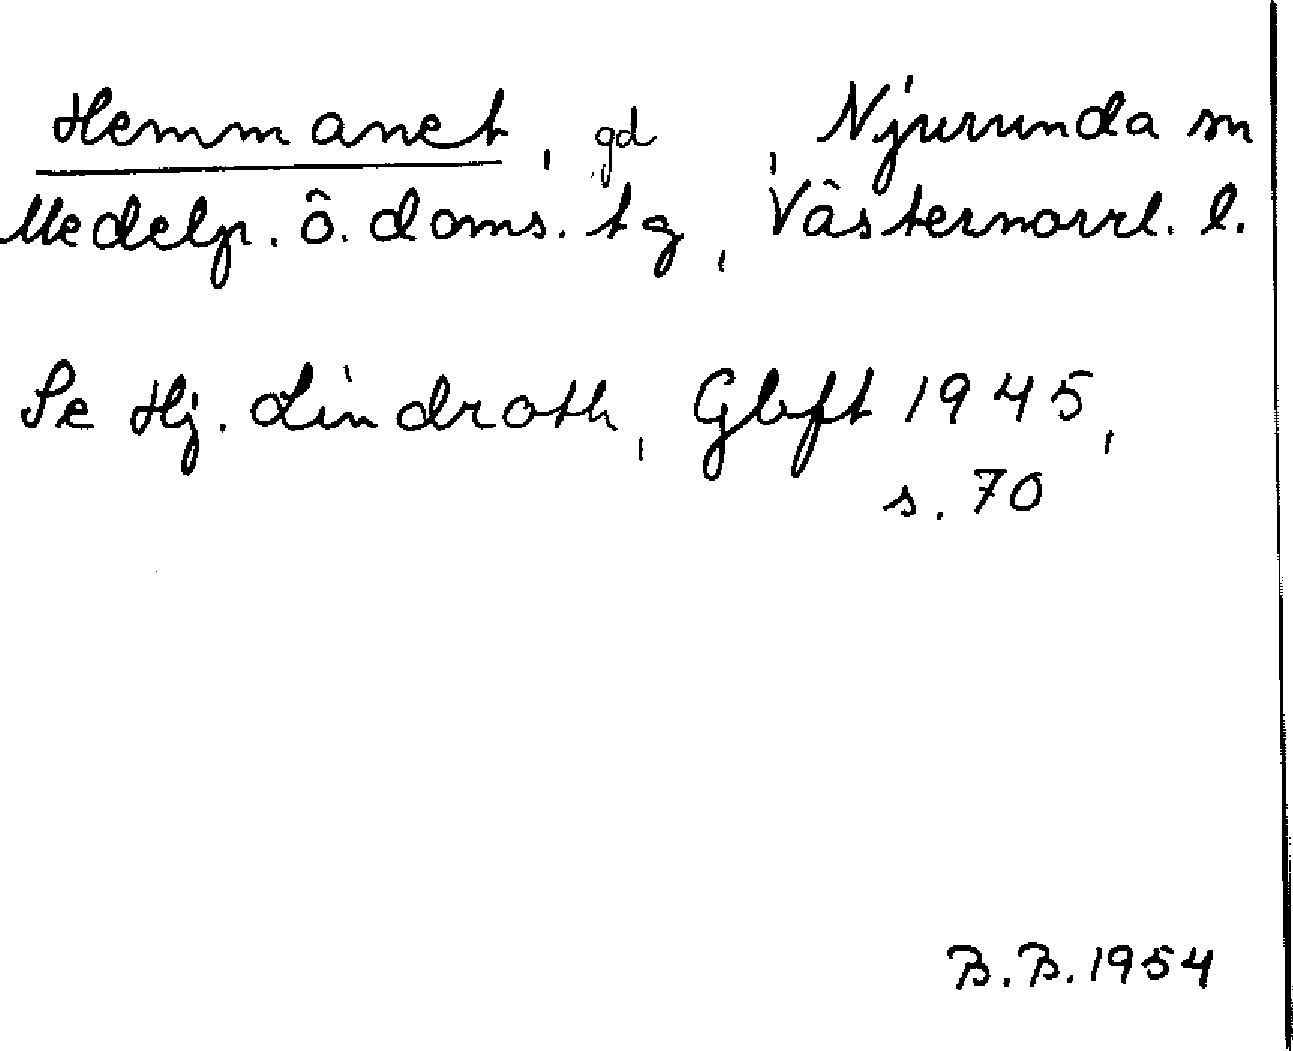 Hemmanet, gd, Njurunda sn
Medelp. ö. doms. tg, Västernorrl. l.
Se Hj. Lindroth, Gbft 1945,
s. 70
B.B. 1954